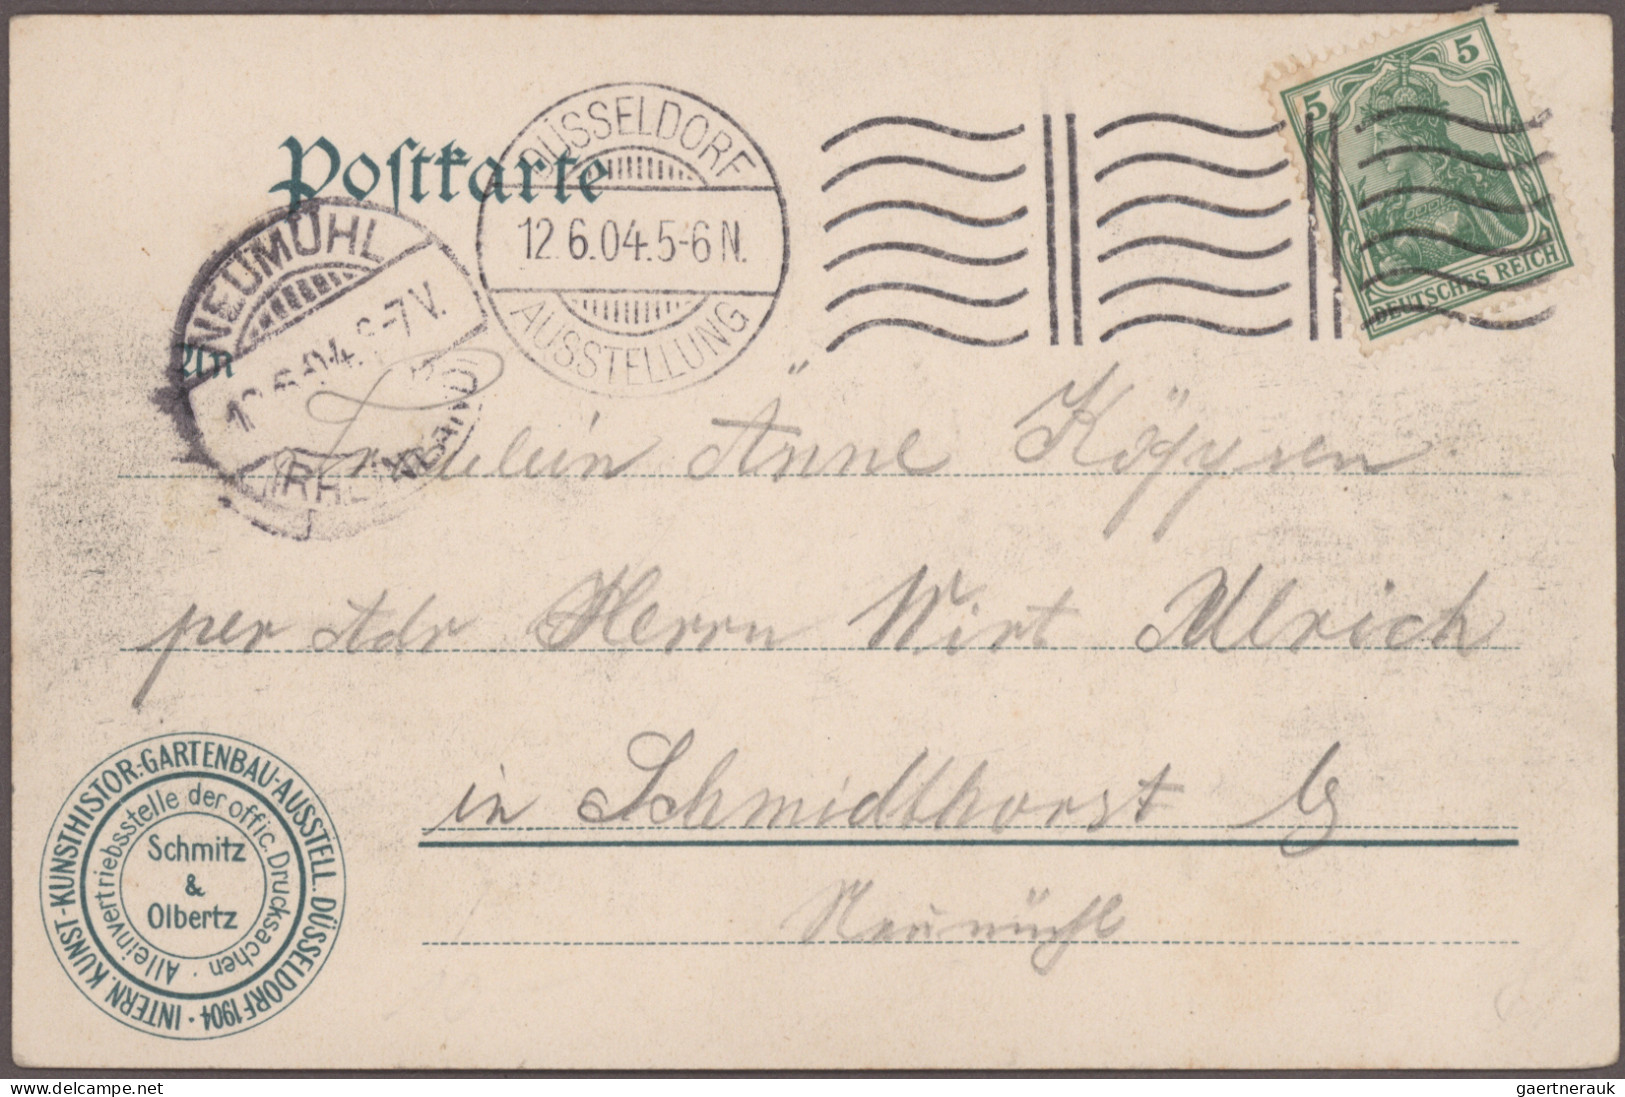 Postkarte
DÜSSELDORF
12.6.04.5-6 N.
AUSSTELLUNG
5 5
DEUTSCHES REICH
NEUMÜHL
6.04. 6-7 V.
(RHEINLAND)
An
Fräulein Änne
per Adr Herrn Wirt Ulrich
in Schmidthorst b
Neumühl
INTERN. KUNST-KUNSTHISTOR.-GARTENBAU-AUSSTELL. DÜSSELDORF 1904 ·
Alleinvertriebsstelle der offic. Drucksachen ·
Schmitz
&
Olbertz
gaertnerauk @ delcampe.net